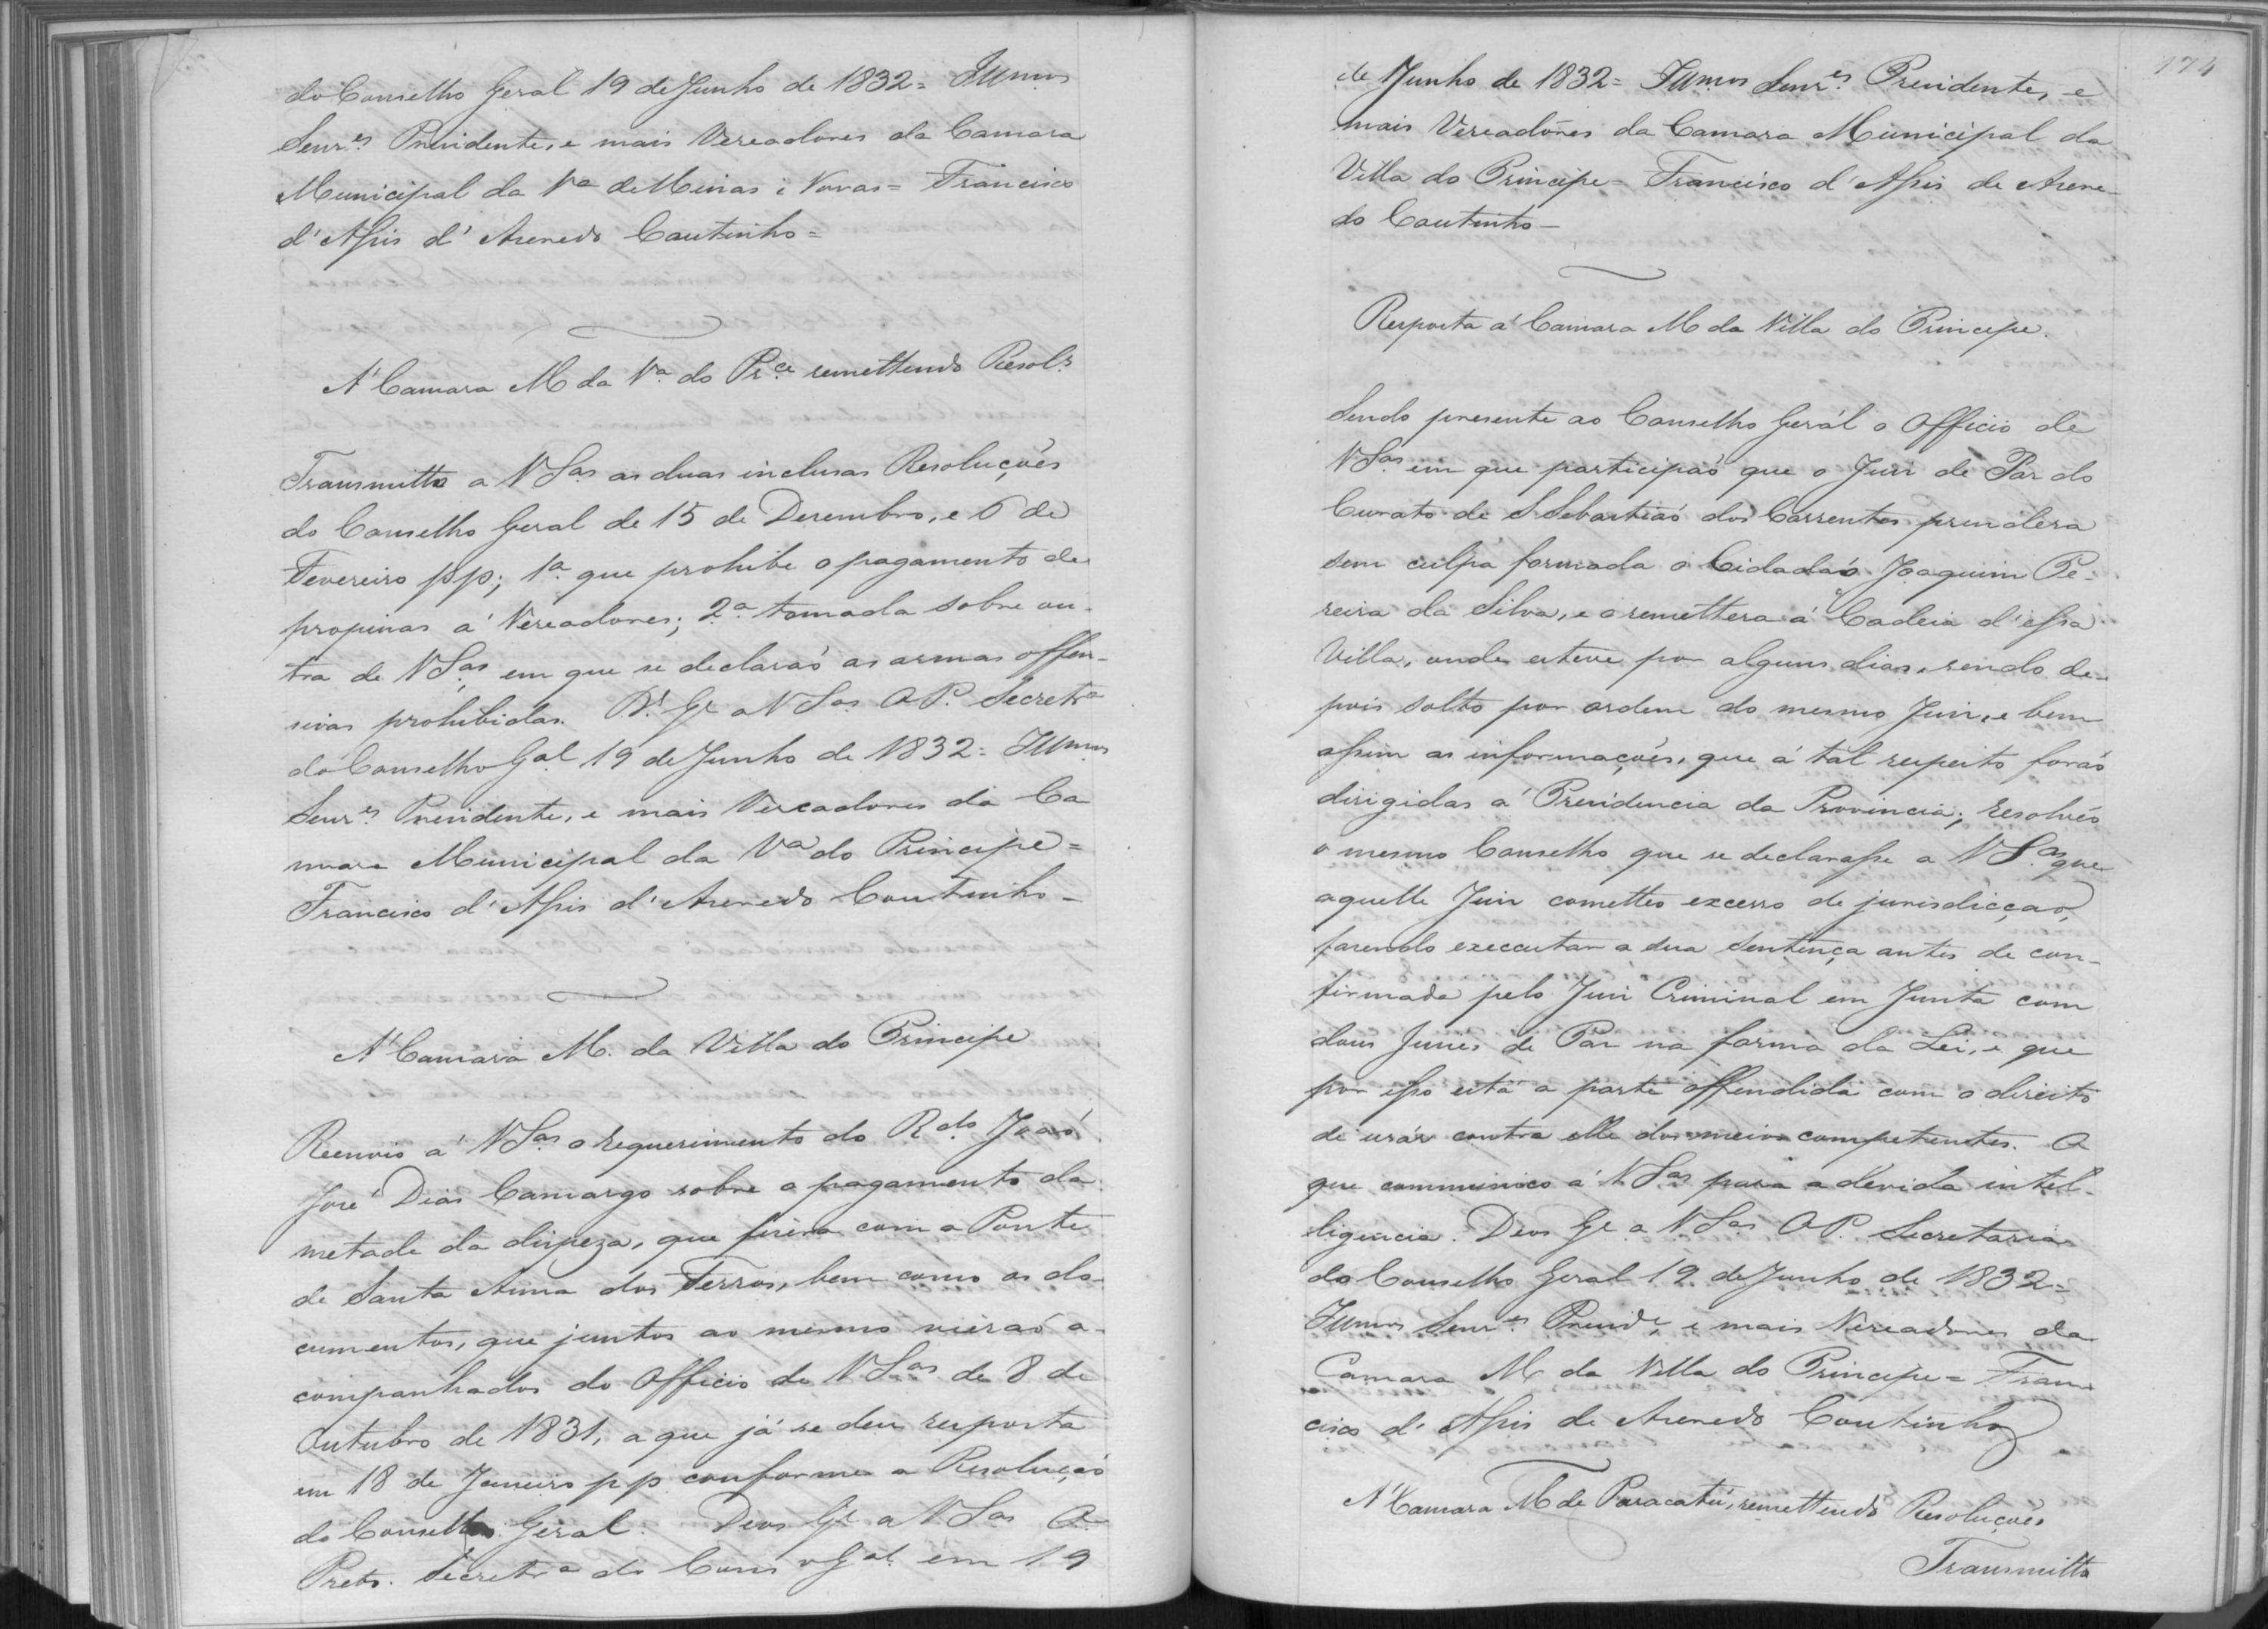 do Conselho Geral 19 de Junho de 1832 = Illmos
Senres Presidente, e mais Vereadores da Camara
Municipal da Va de Minas Novas = Francisco
d'Assis d'Azeredo Coutinho =
A' Camara M da Va do Pr.ce remettendo Resol.s
Transmitto a V Sas as duas inclusas Resoluções
do Conselho Geral de 15 de Dezembro, e 6 de
Fevereiro pp; 1a que prohibe o pagamento de
propinas a' Vereadores; 2a tomada sobre ou-
tra de V Sas em que se declaraõ as armas offen-
sivas prohibidas. Ds Ge a V Sas O P. Secretra
do Conselho Gal 19 de Junho de 1832 = Illmos
Senres Presidente, e mais Vereadores da Ca
mara Municipal da Va do Principe =
Francisco d'Assis d'Azeredo Coutinho -
A' Camara M. da Villa do Principe
Reenvio a' V Sas o requerimento do Rdo Joaõ
José Dias Camargo sobre o pagamento da
metade da dispeza, que fizera com a Ponte
de Santa Anna dos Ferros, bem como os do-
cumentos, que juntos ao mesmo vieraõ a-
companhados do Officio de V Sas de 8 de
Outubro de 1831, a que já se deu resposta
em 18 de Janeiro pp conforme a Resoluçaõ
do Conselho Geral. Deos Ge a V Sas O
Preto. Secretra do Conso Gal em 19
174
de Junho de 1832 = Illmos Senres Presidente, e
mais Vereadores da Camara Municipal da
Villa do Principe = Francisco d'Assis de Azere-
do Coutinho -
Resposta a' Camara M da Villa do Principe.
Sendo presente ao Conselho Gerál o Officio de
V Sas em que participaõ que o Juiz de Paz do
Curato de S Sebastiaõ dos Correntes prendera
sem culpa formada o Cidadaõ Joaquim Pe-
reira da Silva, e o remettera á Cadeia d'essa
Villa, onde esteve por alguns dias, sendo de-
pois solto por ordem do mesmo Juiz, e bem
assim as informações, que á tal respeito foraõ
dirigidas a' Presidencia da Provincia; resolveo
o mesmo Conselho que se declarasse a V Sas que
aquelle Juiz cometteo excesso de jurisdicçaõ,
fazendo executar a sua sentença antes de con-
firmada pelo Juiz Criminal em Junta com
dous Juizes de Paz na forma da Lei, e que
por isso está a parte offendida com o direito
de usár contra elle dos meios competentes. O
que communico á V Sas para a devida intel-
ligencia. Deos Ge a V Sas O P. Secretaria
do Conselho Geral 19 de Junho de 1832 =
Illmos Senres Preside, e mais Vereadores da
Camara M da Villa do Principe = Fran
cisco d'Assis de Azeredo Coutinho
A' Camara M de Paracatú, remettendo Resoluções
Transmitto